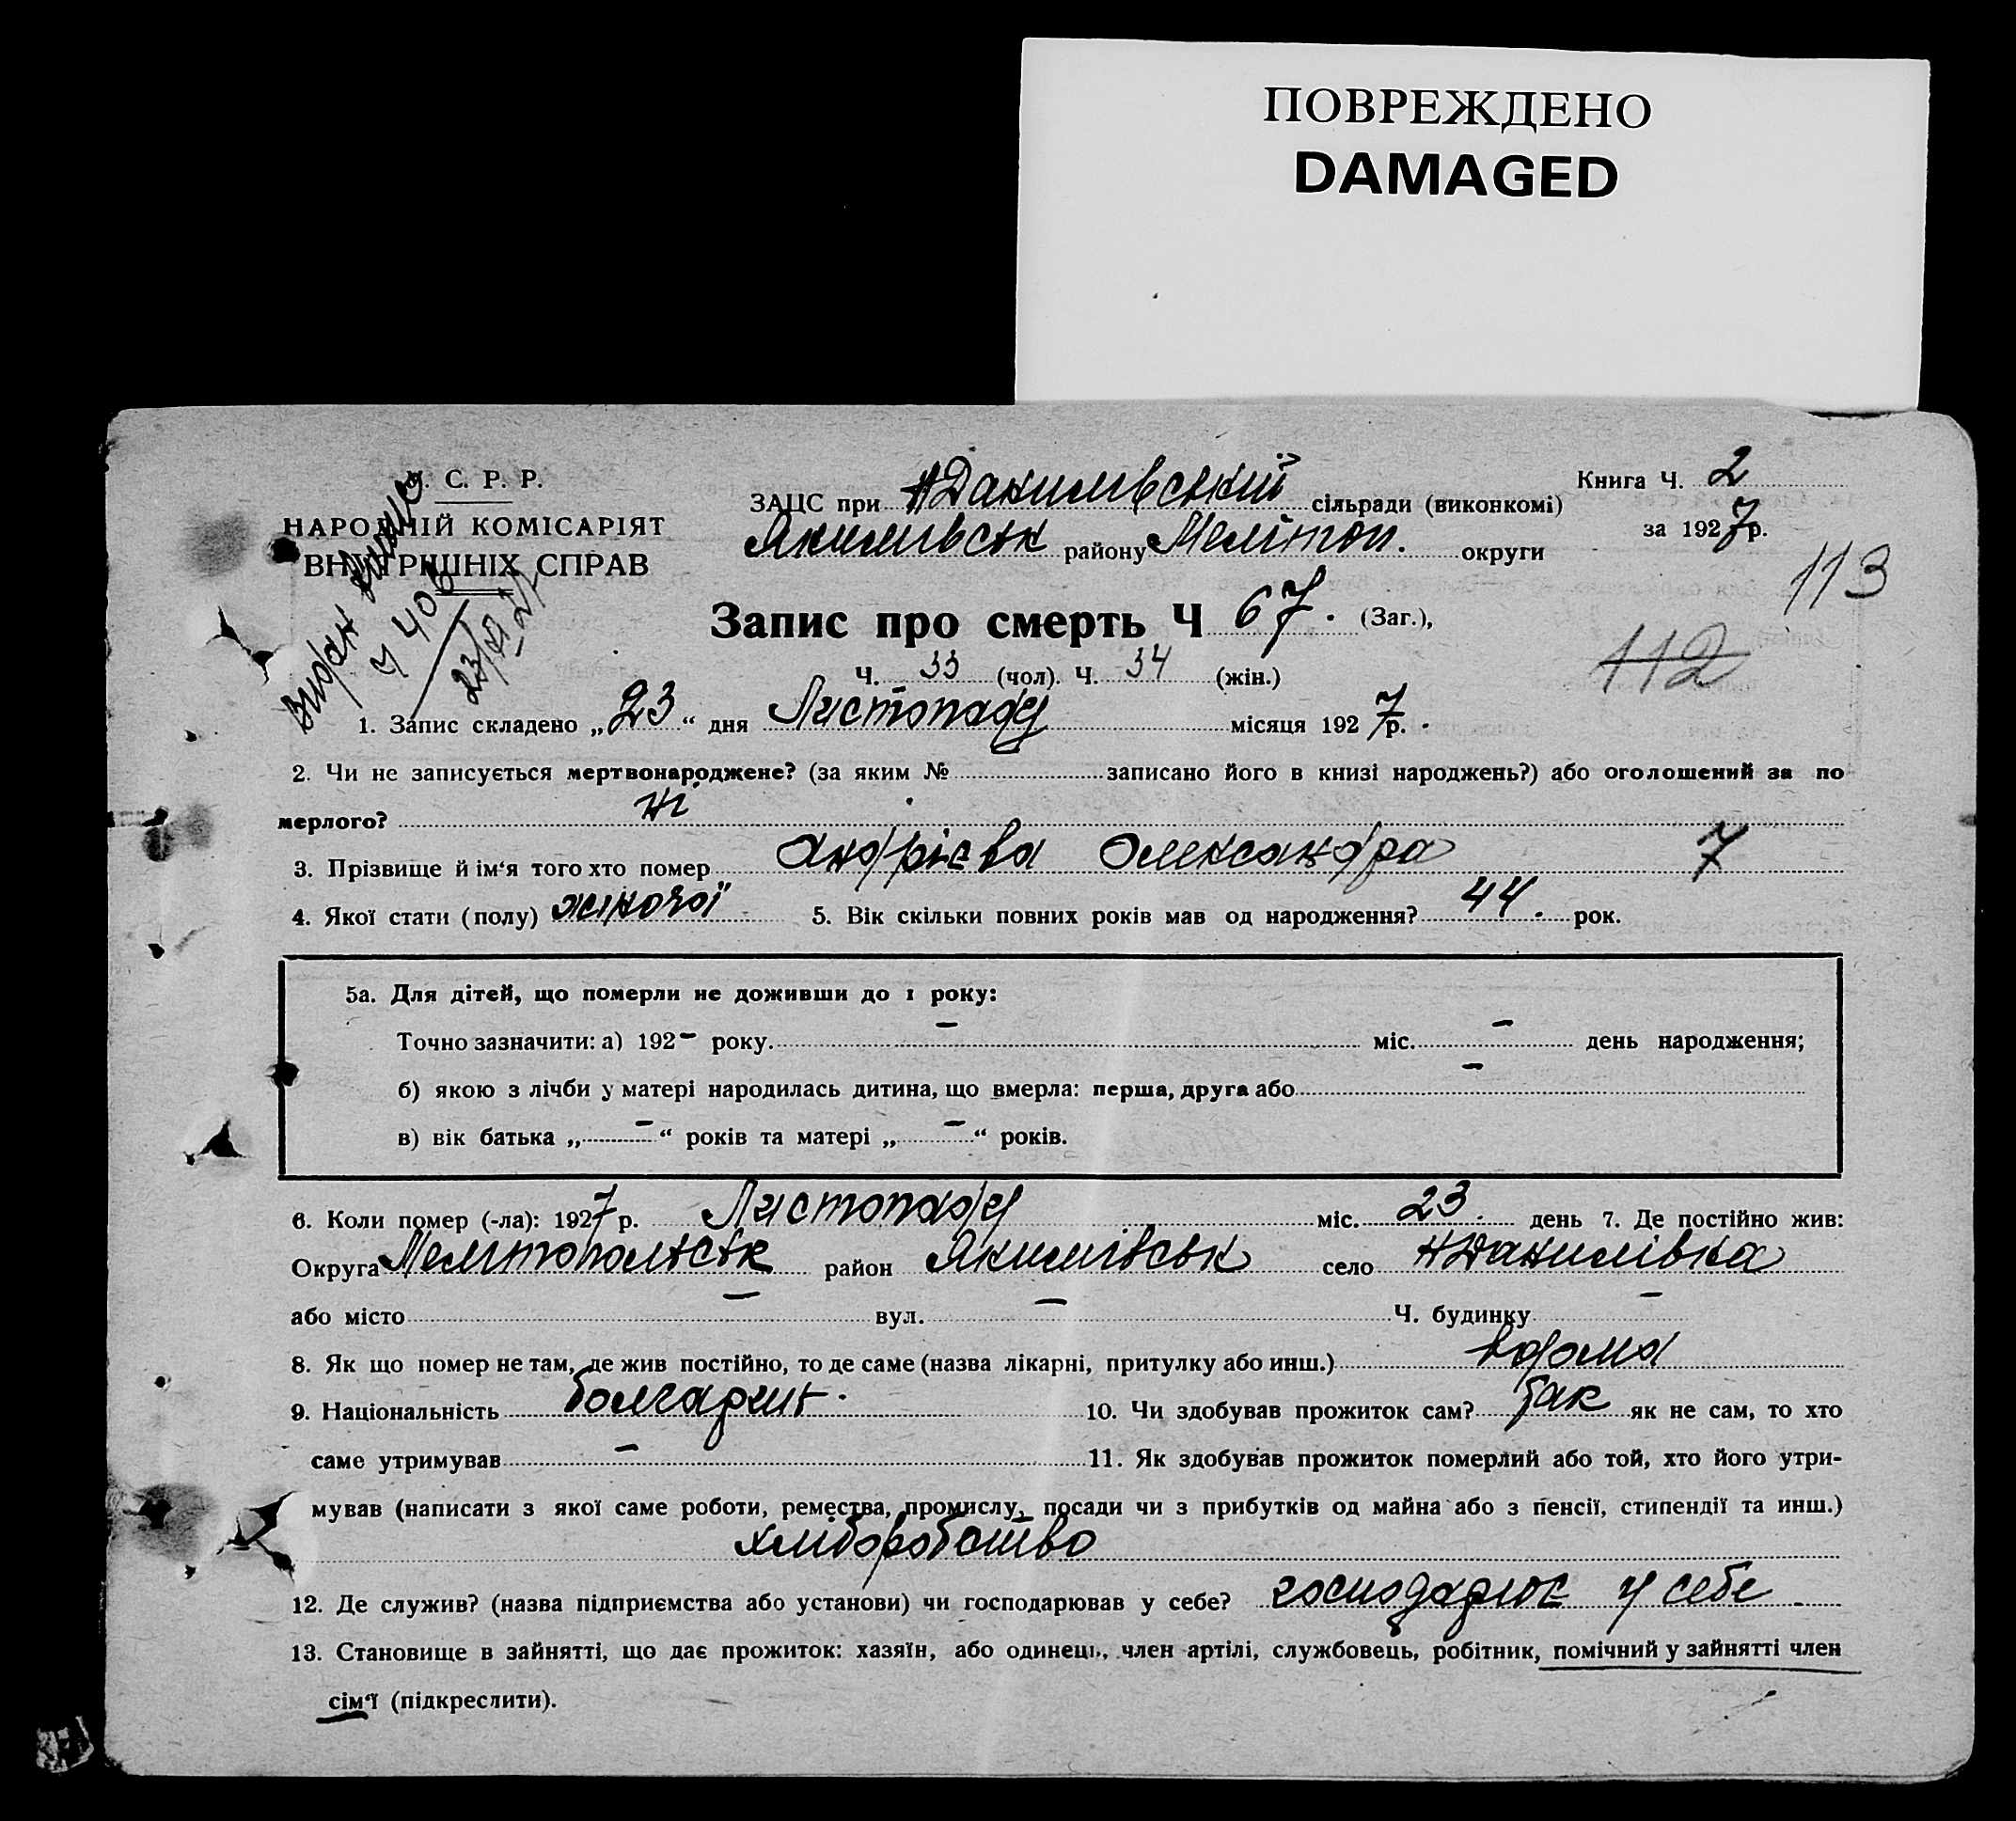 ПОВРЕЖДЕНО
DAMAGED
У. С. Р. Р.
НАРОДНІЙ КОМІСАРІЯТ
ВНУТРІШНІХ СПРАВ
Ч 406
23/XI 27
ЗАЦС при НДанилівський сільради (виконкомі)
Якимівськ району Меліton. округи
Книга Ч. 2
за 1927р.
113
112
Запис про смерть Ч 67. (Заг.),
Ч. 33 (чол). Ч. 34 (жін.)
1. Запис складено „23“ дня Листопаду місяця 1927р.
2. Чи не записується мертвонароджене? (за яким № записано його в книзі народжень?) або оголошений за по
мерлого? ні
3. Прізвище й ім‘я того хто помер Андрієва Олександра 7
4. Якої стати (полу) жіночої 5. Вік скільки повних років мав од народження? 44. рок.
5а. Для дітей, що померли не доживши до 1 року:
Точно зазначити: а) 192- року. - міс. - день народження;
б) якою з лічби у матері народилась дитина, що вмерла: перша, друга або -
в) вік батька „ - “ років та матері „ - “ років.
6. Коли помер (-ла): 1927 р. Листопаду міс. 23. день 7. Де постійно жив:
Округа Мелітопольськ район Якимівськ село НДанилівка
або місто - вул. - Ч. будинку -
8. Як що помер не там, де жив постійно, то де саме (назва лікарні, притулку або инш.) вдома
9. Національність болгарит. 10. Чи здобував прожиток сам? так як не сам, то хто
саме утримував - 11. Як здобував прожиток померлий або той, хто його утри-
мував (написати з якої саме роботи, ремества, промислу, посади чи з прибутків од майна або з пенсії, стипендії та инш.)
хліборобство
12. Де служив? (назва підприємства або установи) чи господарював у себе? господарює у себе
13. Становище в зайнятті, що дає прожиток: хазяїн, або одинець, член артілі, службовець, робітник, помічний у зайнятті член
сім‘ї (підкреслити).